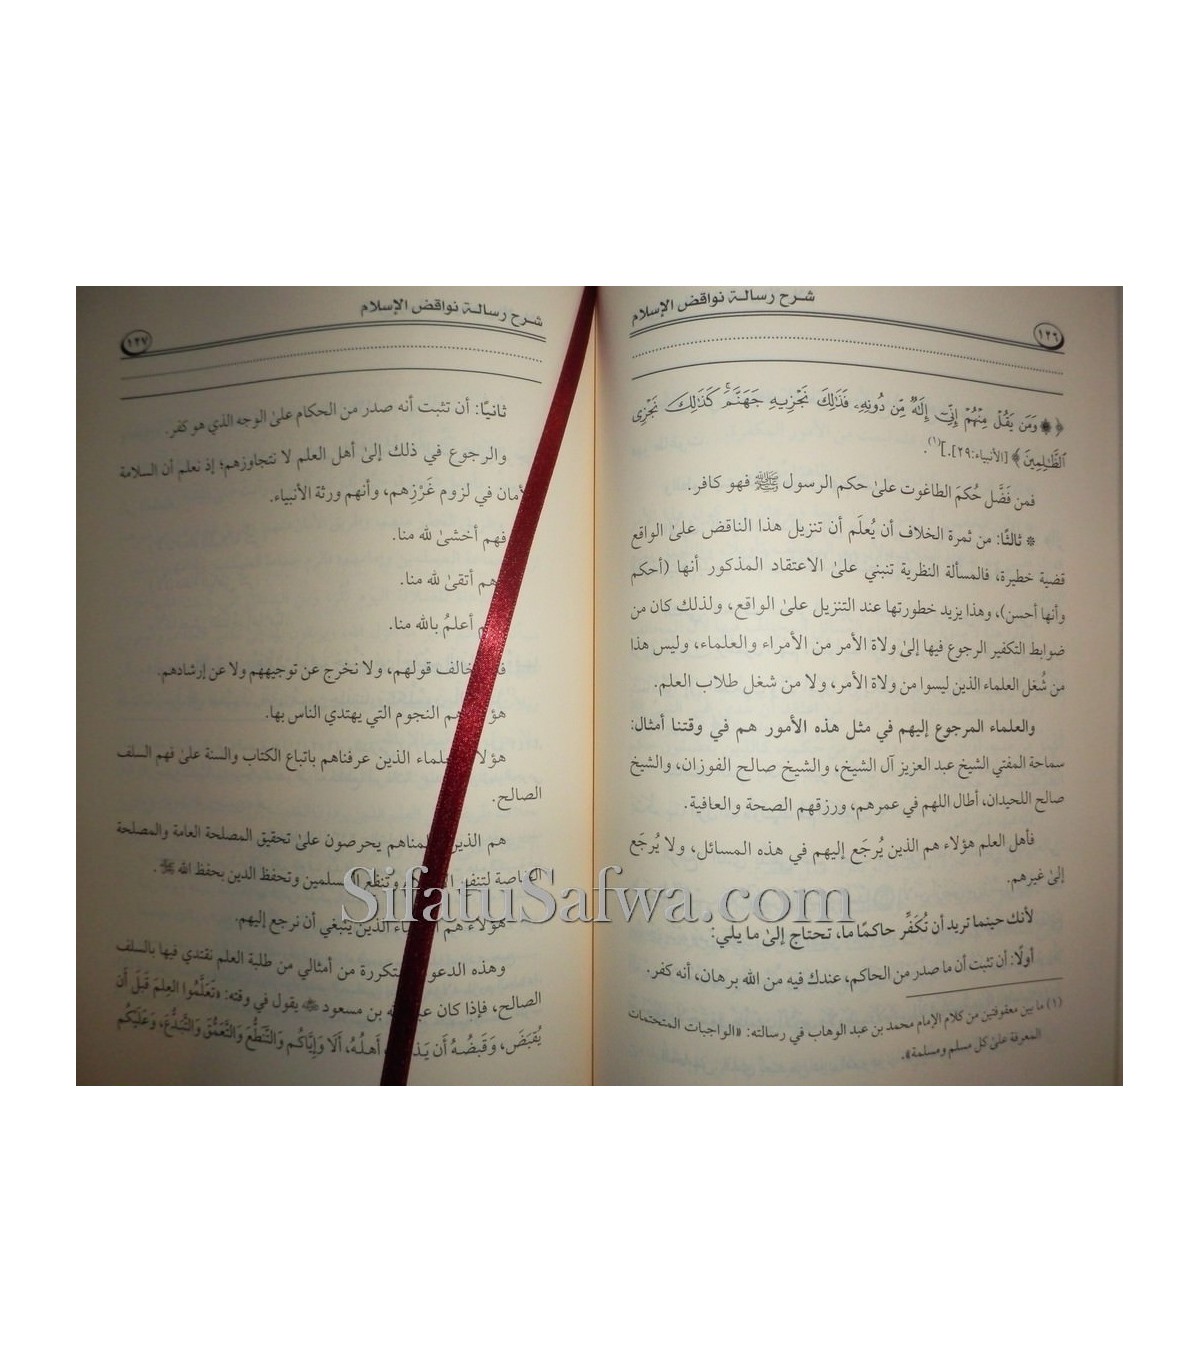 شرح رسالة نواقض الإسلام
١٢٦
﴿۞ وَمَن يَقُلْ مِنْهُمْ إِنِّىٓ إِلَٰهٌ مِّن دُونِهِۦ فَذَٰلِكَ نَجْزِيهِ جَهَنَّمَ ۚ كَذَٰلِكَ نَجْزِى
ٱلظَّٰلِمِينَ﴾ [الأنبياء:٢٩].](١).
فمن فَضَّل حُكمَ الطاغوت علىٰ حكم الرسول ﷺ فهو كافر.
* ثالثًا: من ثمرة الخلاف أن يُعلَم أن تنزيل هذا الناقض علىٰ الواقع
قضية خطيرة، فالمسألة النظرية تنبني علىٰ الاعتقاد المذكور أنها (أحكم
وأنها أحسن)، وهذا يزيد خطورتها عند التنزيل علىٰ الواقع، ولذلك كان من
ضوابط التكفير الرجوع فيها إلىٰ ولاة الأمر من الأمراء والعلماء، وليس هذا
من شُغل العلماء الذين ليسوا من ولاة الأمر، ولا من شغل طلاب العلم.
والعلماء المرجوع إليهم في مثل هذه الأمور هم في وقتنا أمثال:
سماحة المفتي الشيخ عبد العزيز آل الشيخ، والشيخ صالح الفوزان، والشيخ
صالح اللحيدان، أطال اللهم في عمرهم، ورزقهم الصحة والعافية.
فأهل العلم هؤلاء هم الذين يُرجَع إليهم في هذه المسائل، ولا يُرجَع
إلىٰ غيرهم.
لأنك حينما تريد أن تُكَفِّر حاكمًا ما، تحتاج إلىٰ ما يلي:
أولًا: أن تثبت أن ما صدر من الحاكم، عندك فيه من الله برهان، أنه كفر.
(١) ما بين معقوفتين من كلام الإمام محمد بن عبد الوهاب في رسالته: «الواجبات المتحتمات
المعرفة علىٰ كل مسلم ومسلمة».
شرح رسالة نواقض الإسلام
١٢٧
ثانيًا: أن تثبت أنه صدر من الحكام علىٰ الوجه الذي هو كفر.
والرجوع في ذلك إلىٰ أهل العلم لا نتجاوزهم؛ إذ نعلم أن السلامة
في لزوم غَرْزِهم، وأنهم ورثة الأنبياء.
فهم أخشىٰ لله منا.
هم أتقىٰ لله منا.
أعلمُ بالله منا.
قولهم، ولا نخرج عن توجيههم ولا عن إرشادهم.
هم النجوم التي يهتدي الناس بها.
الذين عرفناهم باتباع الكتاب والسنة علىٰ فهم السلف
الصالح.
هم يحرصون علىٰ تحقيق المصلحة العامة والمصلحة
وتنفع وتحفظ الدين بحفظ الله ﷻ.
هؤلاء هم الذين ينبغي أن نرجع إليهم.
وهذه من أمثالي من طلبة العلم نقتدي فيها بالسلف
الصالح، فإذا كان بن مسعود ﷺ يقول في وقته: «تَعَلَّمُوا العِلمَ قَبلَ أَن
يُقبَضَ، وَقَبضُهُ أَن أَهلُهُ، أَلَا وَإِيَّاكُم وَالتَّنَطُّعَ وَالتَّعَمُّقَ وَالتَّبَدُّعَ، وَعَلَيكُم
SifatuSafwa.com